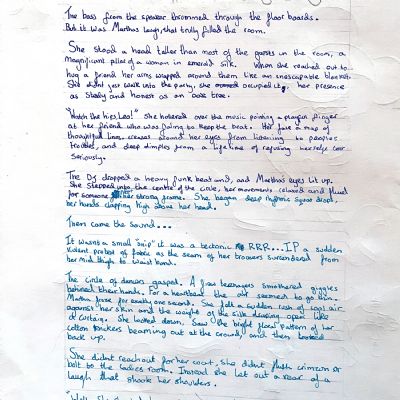 The bass from the speaker thrummed through the floor boards.
But it was Marthas laugh that trully filled the room.
She stood a head taller than most of the guests in the room, a
magnificent pillar of a woman in emerald silk. When she reached out to
hug a friend her arms wrapped around them like an inescapable blanket.
She didnt just walk into the party, she occupied it, her presence
as steady and honest as an oak tree.
"Watch the hips, Leo!" She hollered over the music pointing a playful finger
at her friend who was trying to keep the beat. Her face a map of
thoughtful lines, creases around her eyes from listening to peoples
troubles, and deep dimples from a lifetime of refusing to take herself too
seriously.
The DJ dropped a heavy funk beat and, and Martha's eyes lit up.
She stepped into the centre of the circle, her movements relaxed and fluid
for someone of her strong frame. She began a deep rhythmic squat
her hands clapping high above her head.
Then came the sound...
It wasnt a small "snip" it was a tectonic RRR...IP a sudden
violent protest of fabric as the seam of her trousers surrendered from
her mid thigh to waist band.
The circle of dancers gasped. A few teenagers smothered giggles
behind their hands. For a heartbeat the air seemed to go thin.
Martha froze for exactly one second. She felt a sudden rush of cool air
against her skin and the weight of the silk drooping open like
a curtain. She looked down. Saw the bright floral pattern of her
cotton knickers beaming out at the crowd, and then looked
back up.
She didnt reach out for her coat, she didnt flush crimson or
bolt to the ladies room. Instead she let out a roar of a
laugh that shook her shoulders.